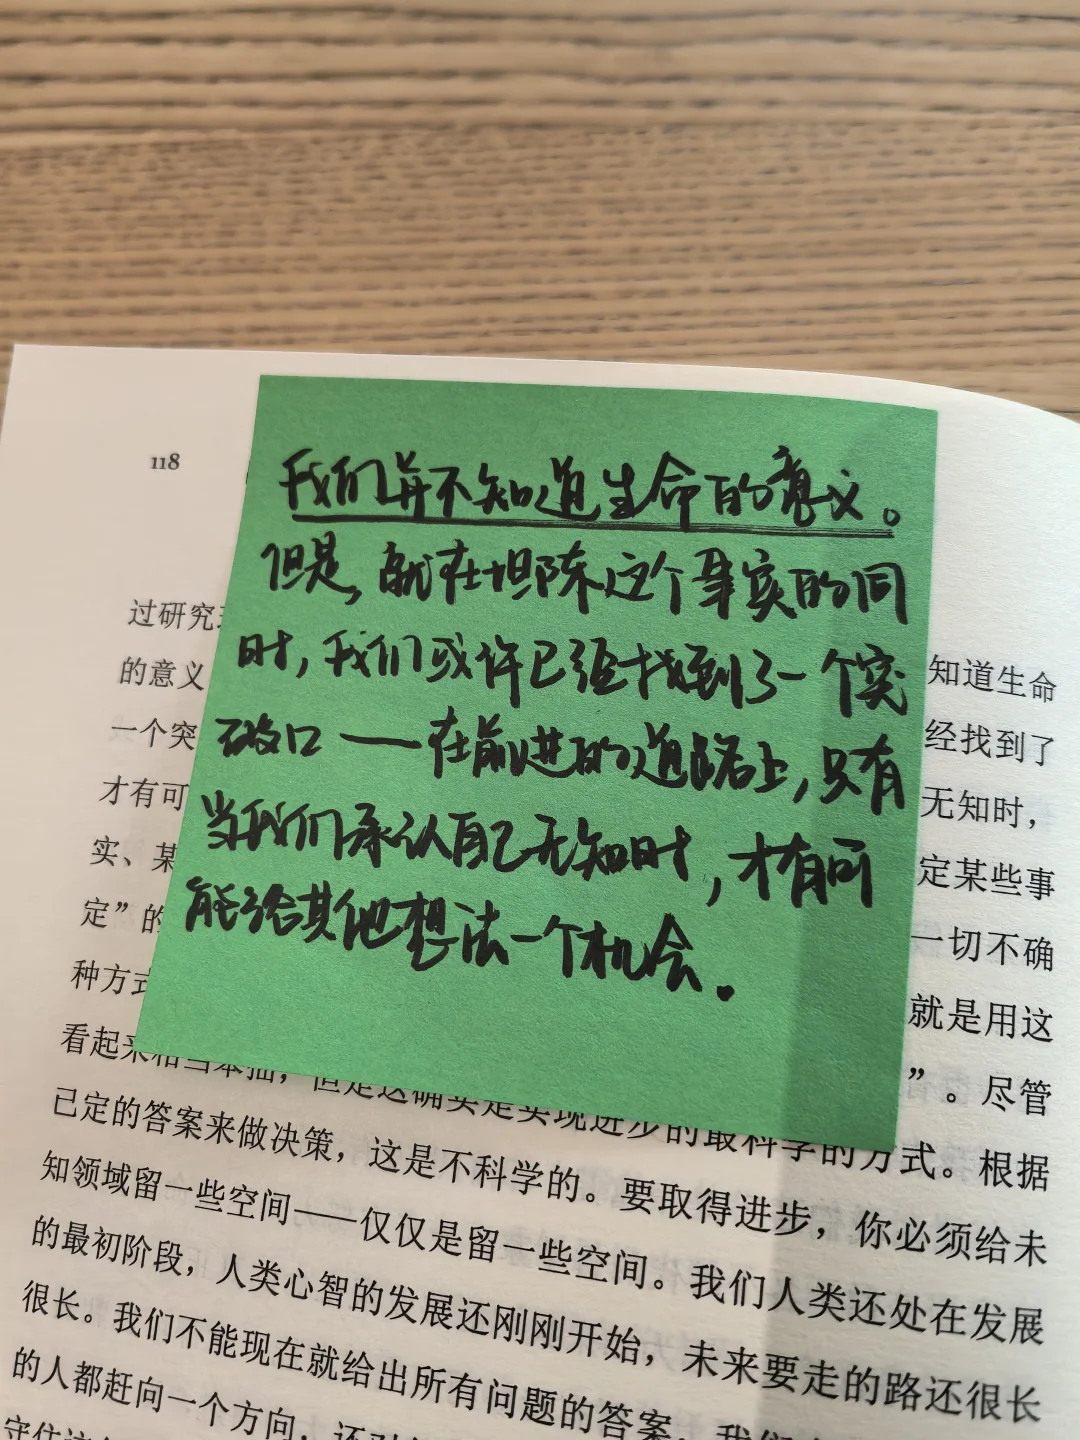 118
我们并不知道生命的意义。
但是，就在坦陈这个事实的同
时，我们或许已经找到了一个突
破口——在前进的道路上，只有
当我们承认自己无知时，才有可
能给其他想法一个机会。
过研究
的意义 知道生命
一个突 经找到了
才有可 无知时，
实、某 定某些事
定”的 一切不确
种方式 就是用这
看起来 ”。尽管
但是这确实是实现进步的最科学的方式。根据
己定的答案来做决策，这是不科学的。要取得进步，你必须给未
知领域留一些空间——仅仅是留一些空间。我们人类还处在发展
的最初阶段，人类心智的发展还刚刚开始，未来要走的路还很长
很长。我们不能现在就给出所有问题的答案，我们
的人都赶向一个方向，还